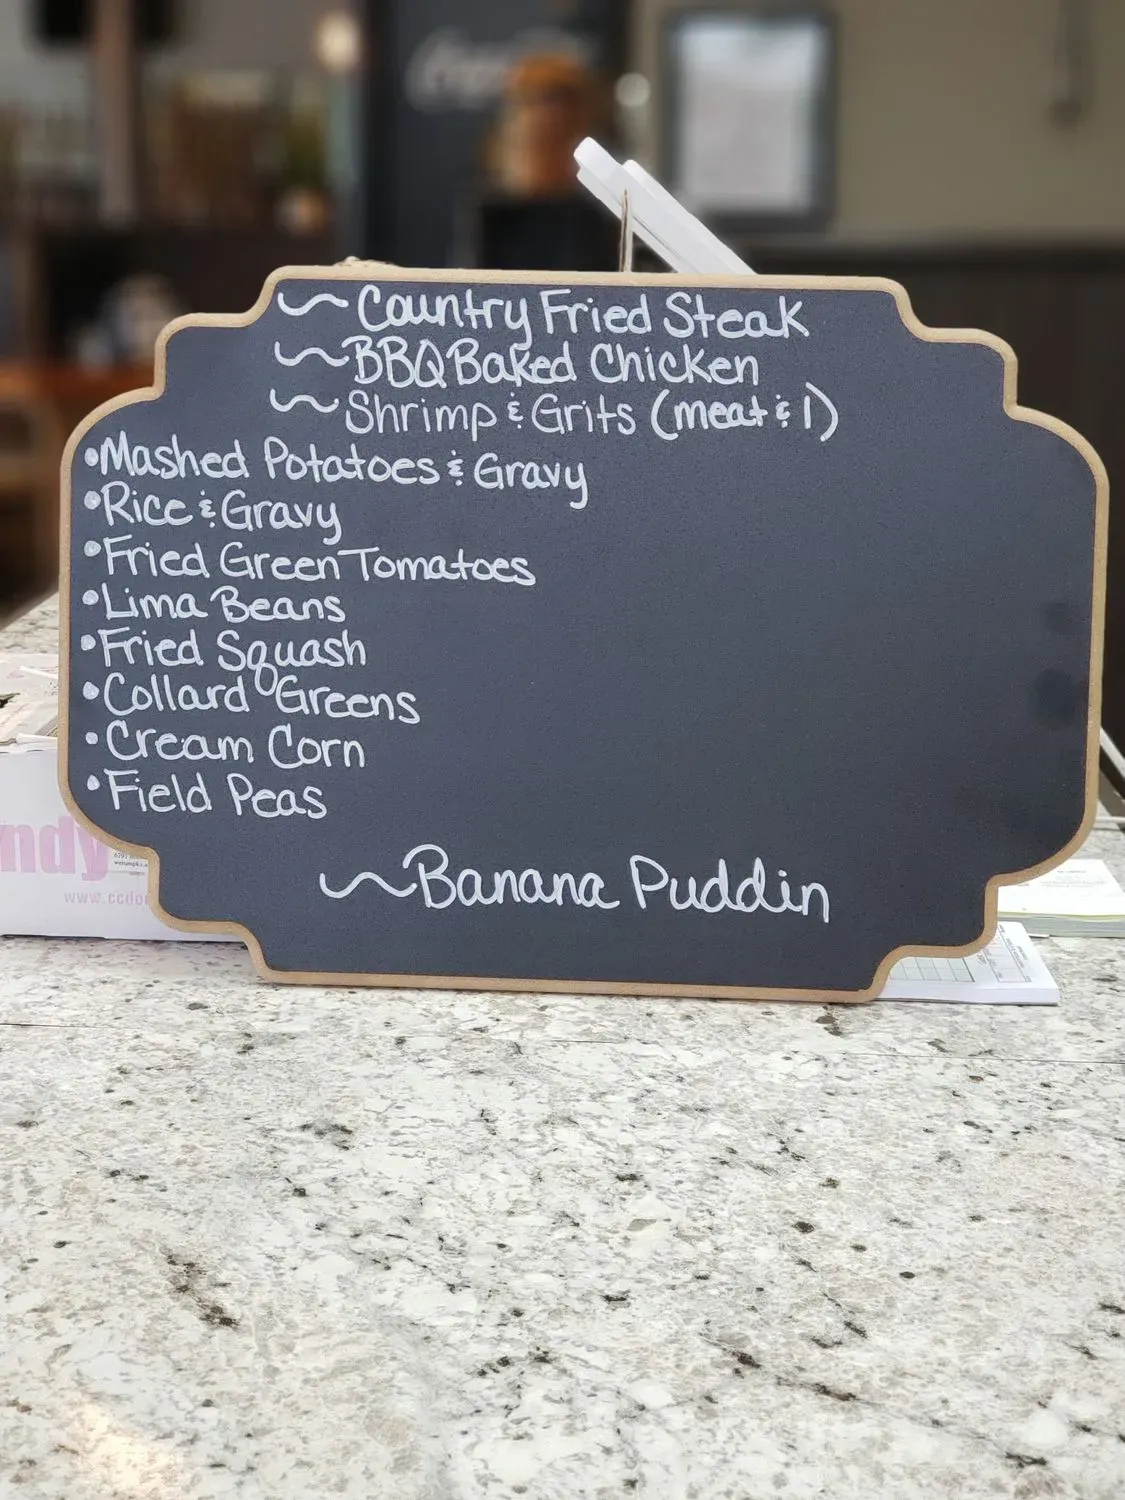 ~ Country Fried Steak
~ BBQ Baked Chicken
~ Shrimp & Grits (meat & 1)
•Mashed Potatoes & Gravy
•Rice & Gravy
•Fried Green Tomatoes
•Lima Beans
•Fried Squash
•Collard Greens
•Cream Corn
•Field Peas
~Banana Puddin
ndy
www.ccdo